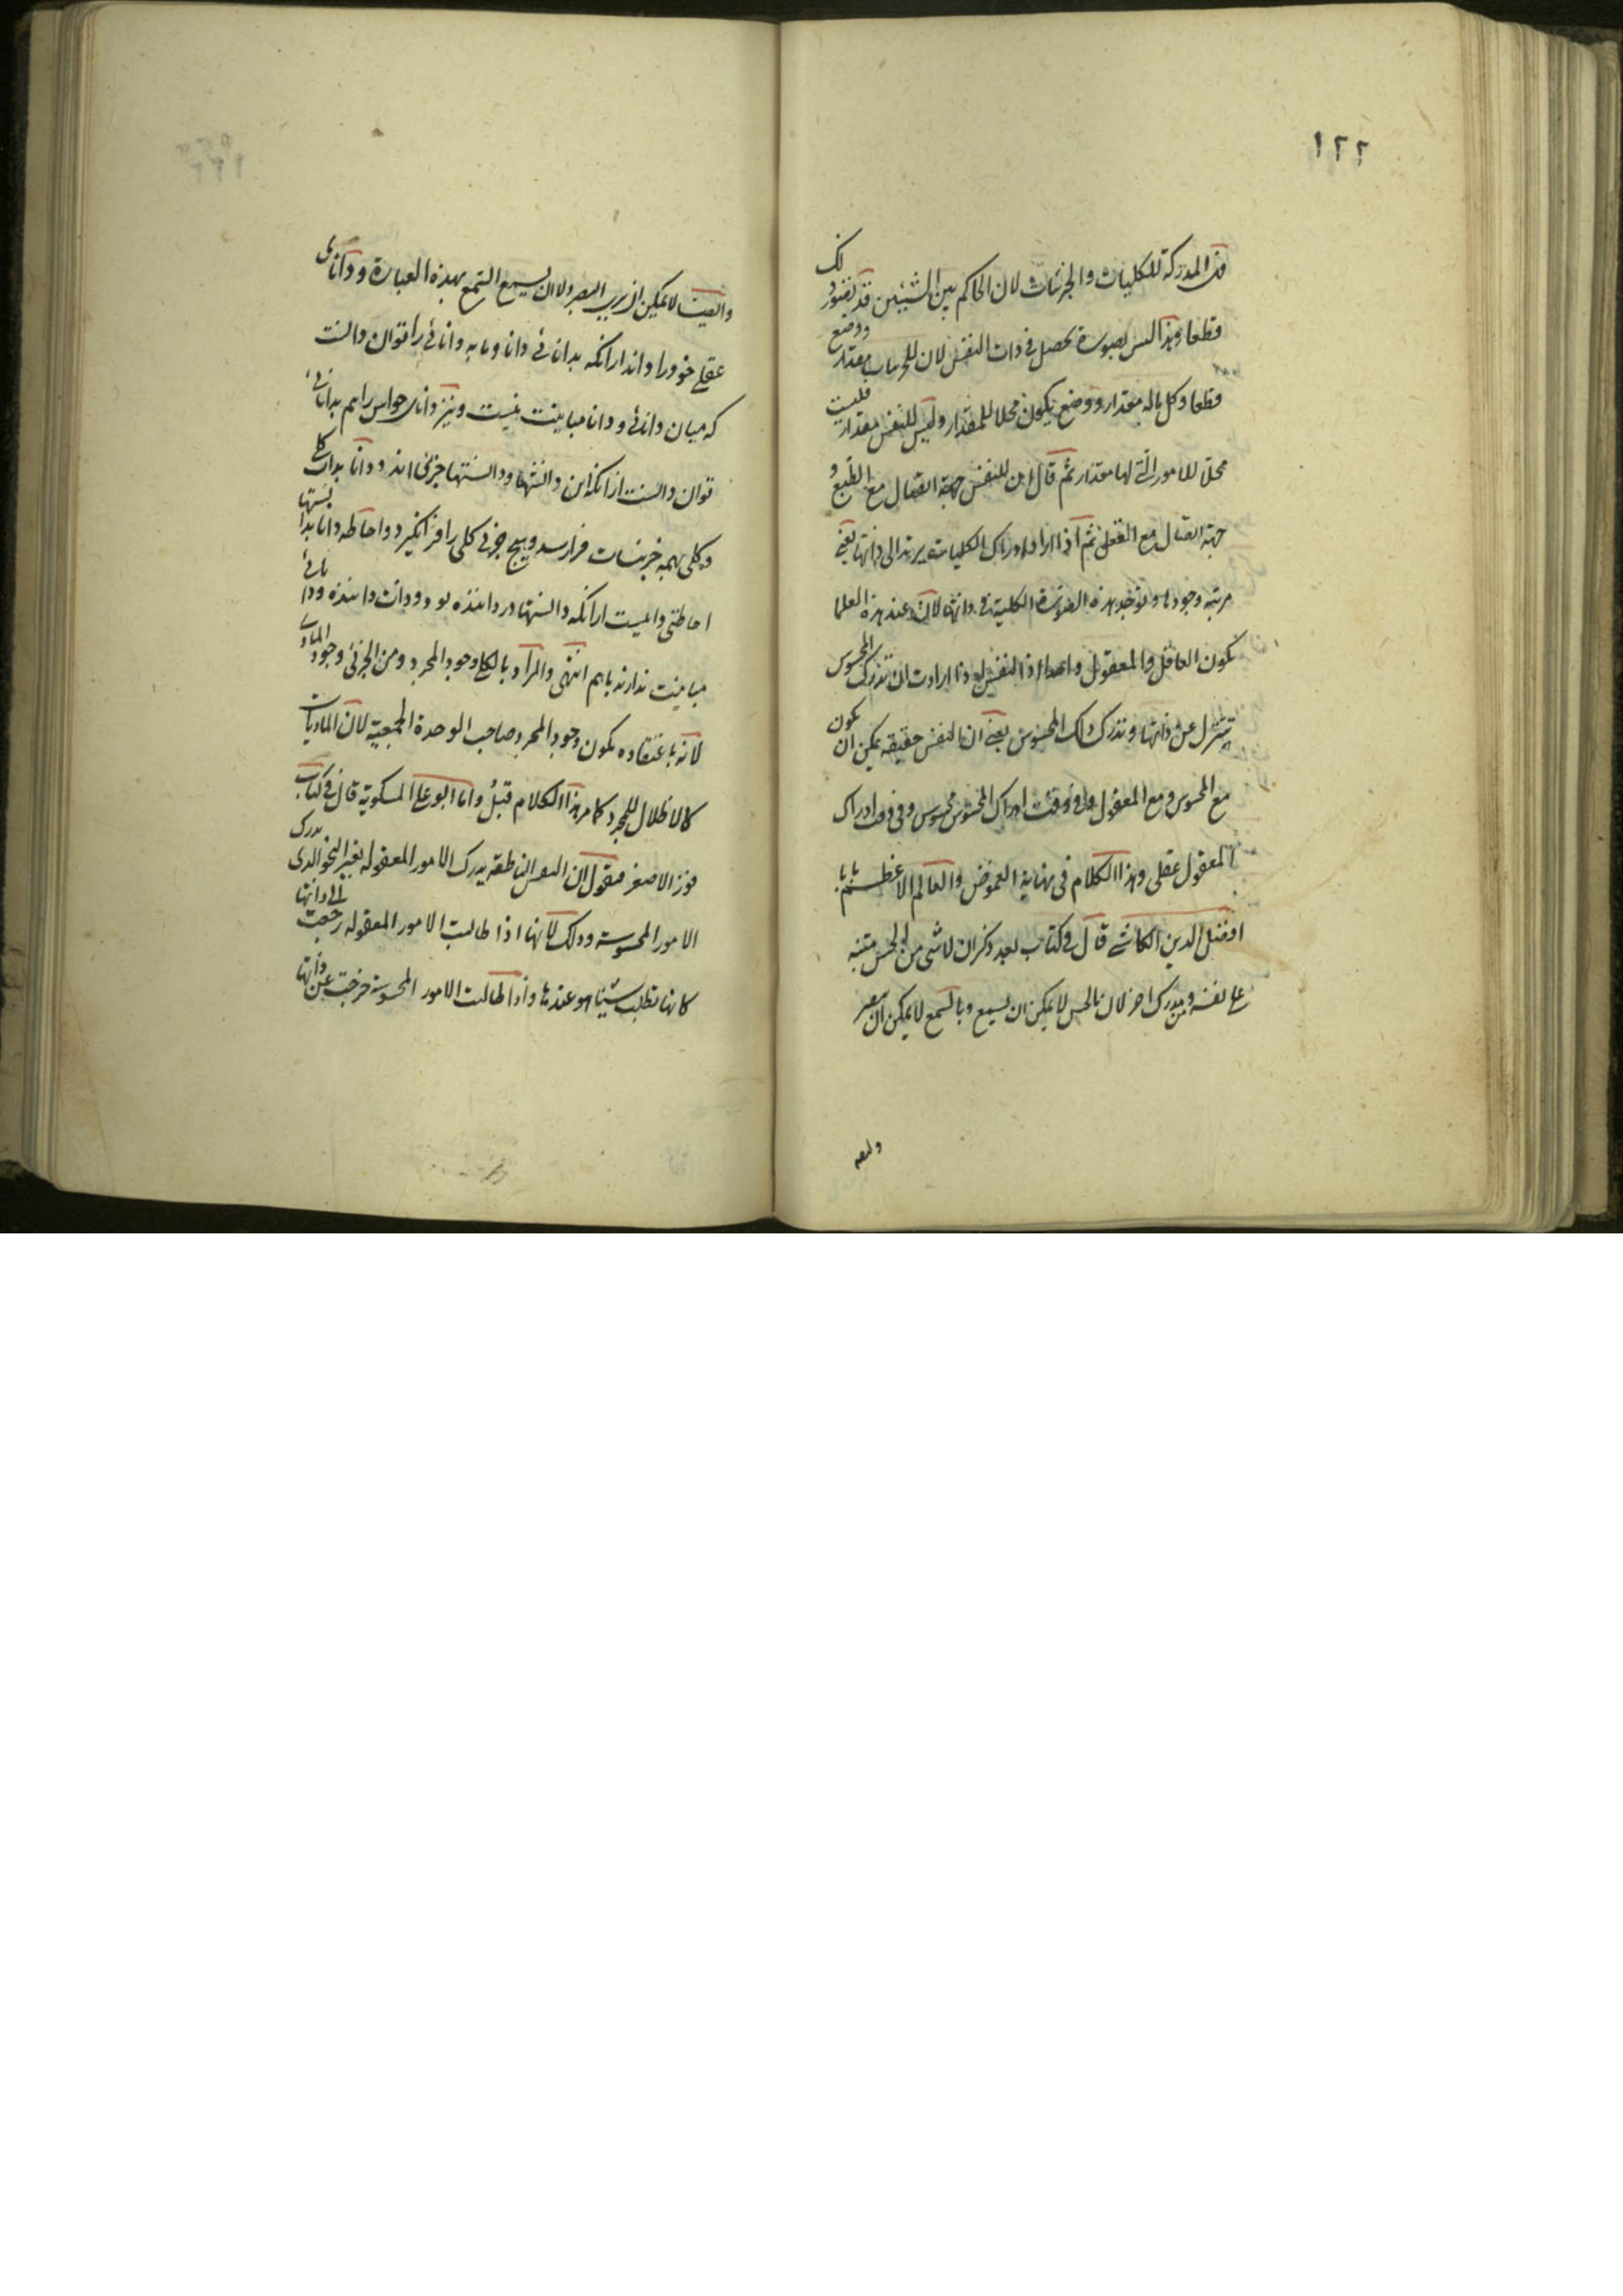 ١٢٢
المدركة للكليات والجزئيات لان الحاكم بين الشيئين قد تصور ذلك
قطعا وهذا ليس بصورة تحصل فى ذات النفس لان للجزئيات مقدار ووضع
قطعا وكل ماله مقدار ووضع يكون محلا للمقدار وليس للنفس مقدار فليست
محلا للامور التى لها مقدار ثم قال ان للنفس جهة اتصال مع الطبع و
جهة اتصال مع العقل ثم اذا اراد ادراك الكليات يرتد الى ذاتها يعنى
مرتبة وجودها وتوجد هذه الصورة الكلية فى ذاتها لان عند هذه العلما
يكون العاقل والمعقول واحدا اذ النفس اذا ارادت ان تدرك المحسوس
تتنزل عن ذاتها وتدرك ذلك المحسوس يعنى ان النفس حقيقة يمكن ان يكون
مع المحسوس ومع المعقول وفى وقت ادراك المحسوس محسوس وفى وقت ادراك
المعقول عقلى وهذا الكلام فى نهاية الغموض والعالم الاعظم بابا
افضل الدين الكاشى قال فى كتاب بعد ذكر ان لا شى من الحس متنبه
على نفسه ومن مدرك اخر لان بالحس لا يمكن ان يسمع وبالسمع لا يمكن ان يبصر
وايضا
وايضا لا يمكن ان يرى البصر ولا ان يسمع السمع بهذه العبارة ودانائى
عقلى خود را داند از آنكه بدانائى دانا و مايه دانائى را توان دانست
كه ميان دانائى و دانا مباينت نيست و نيز داناى حواس را هم بدانائى
توان دانست از آنكه اين دانشها و دانستها جزئى اند و دانا بدان كلى
و كلى بهمه جزئيات فرا رسد و هيچ جزئى كلى را فرا نگيرد و احاطه دانا بدانستها
احاطتى دائميست از آنكه دانستها در داننده بود و ذات داننده و دانائى
مباينت ندارند با هم انتهى والمراد بالكلى وجود المجرد ومن الجزئى وجود المادى
لانه باعتقاده يكون وجود المجرد صاحب الوحدة الجمعية لان الماديات
كالاظلال للمجرد كما مر هذا الكلام قبل واما ابو على المسكويه قال فى كتاب
فوز الاصغر فنقول ان النفس الناطقة يدرك الامور المعقوله بغير النحو الذى يدرك
الامور المحسوسة وذلك لانها اذا طالبت الامور المعقوله رجعت الى ذاتها
كانها تطلب شيئا هو عندها واذا طالبت الامور المحسوسة خرجت عن ذاتها